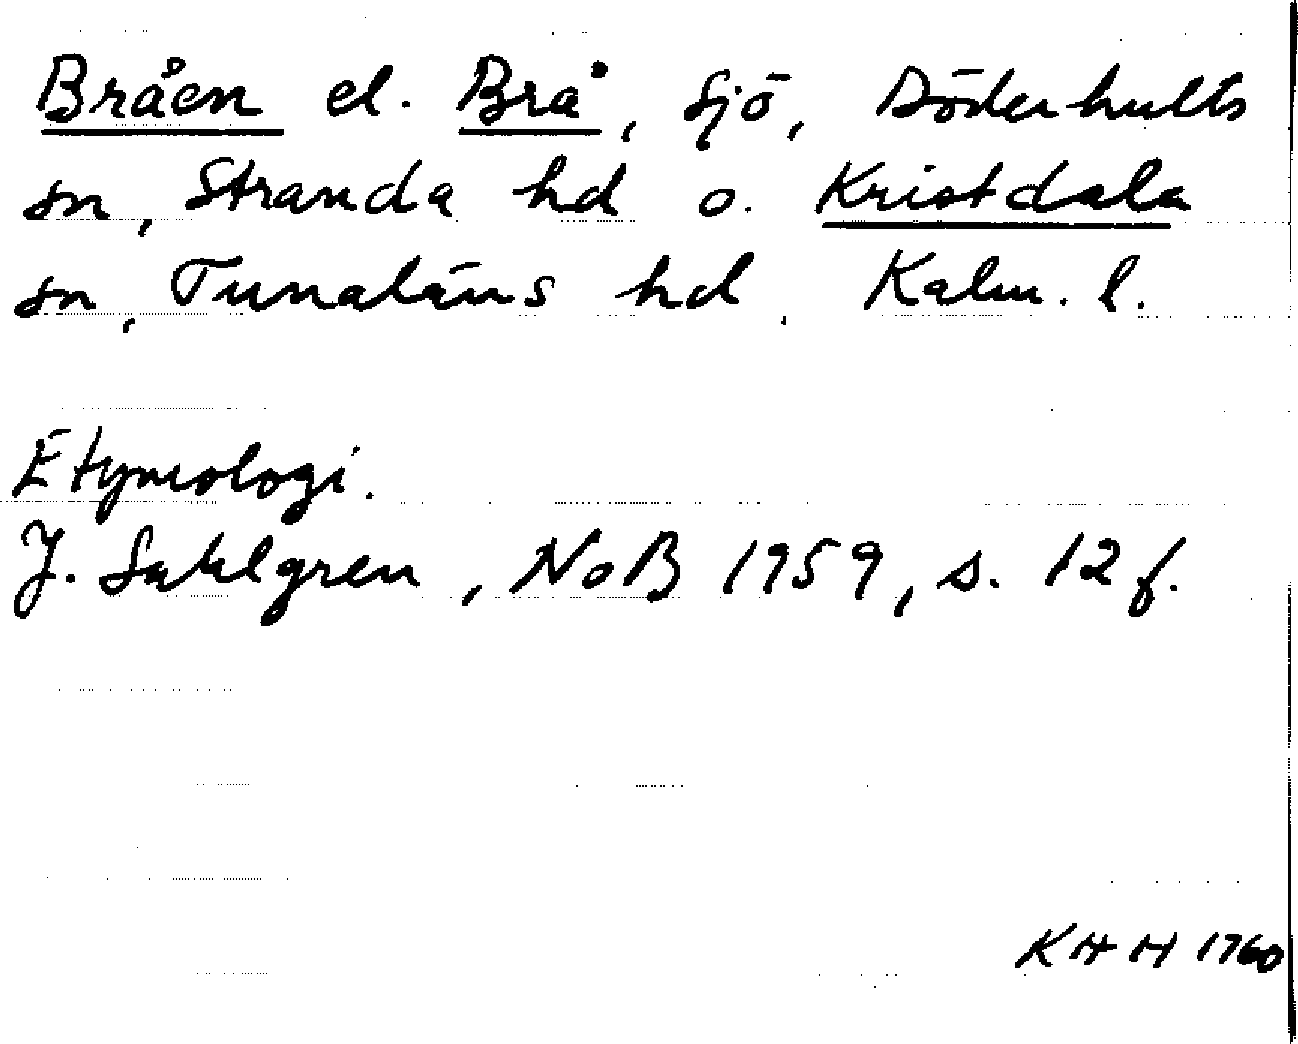 Bråen el. Brå, sjö, Döderhults
sn, Stranda hd o. Kristdala
sn, Tunaläns hd, Kalm. l.
Etymologi.
J. Sahlgren, NoB 1959, s. 12 f.
KHH 1960